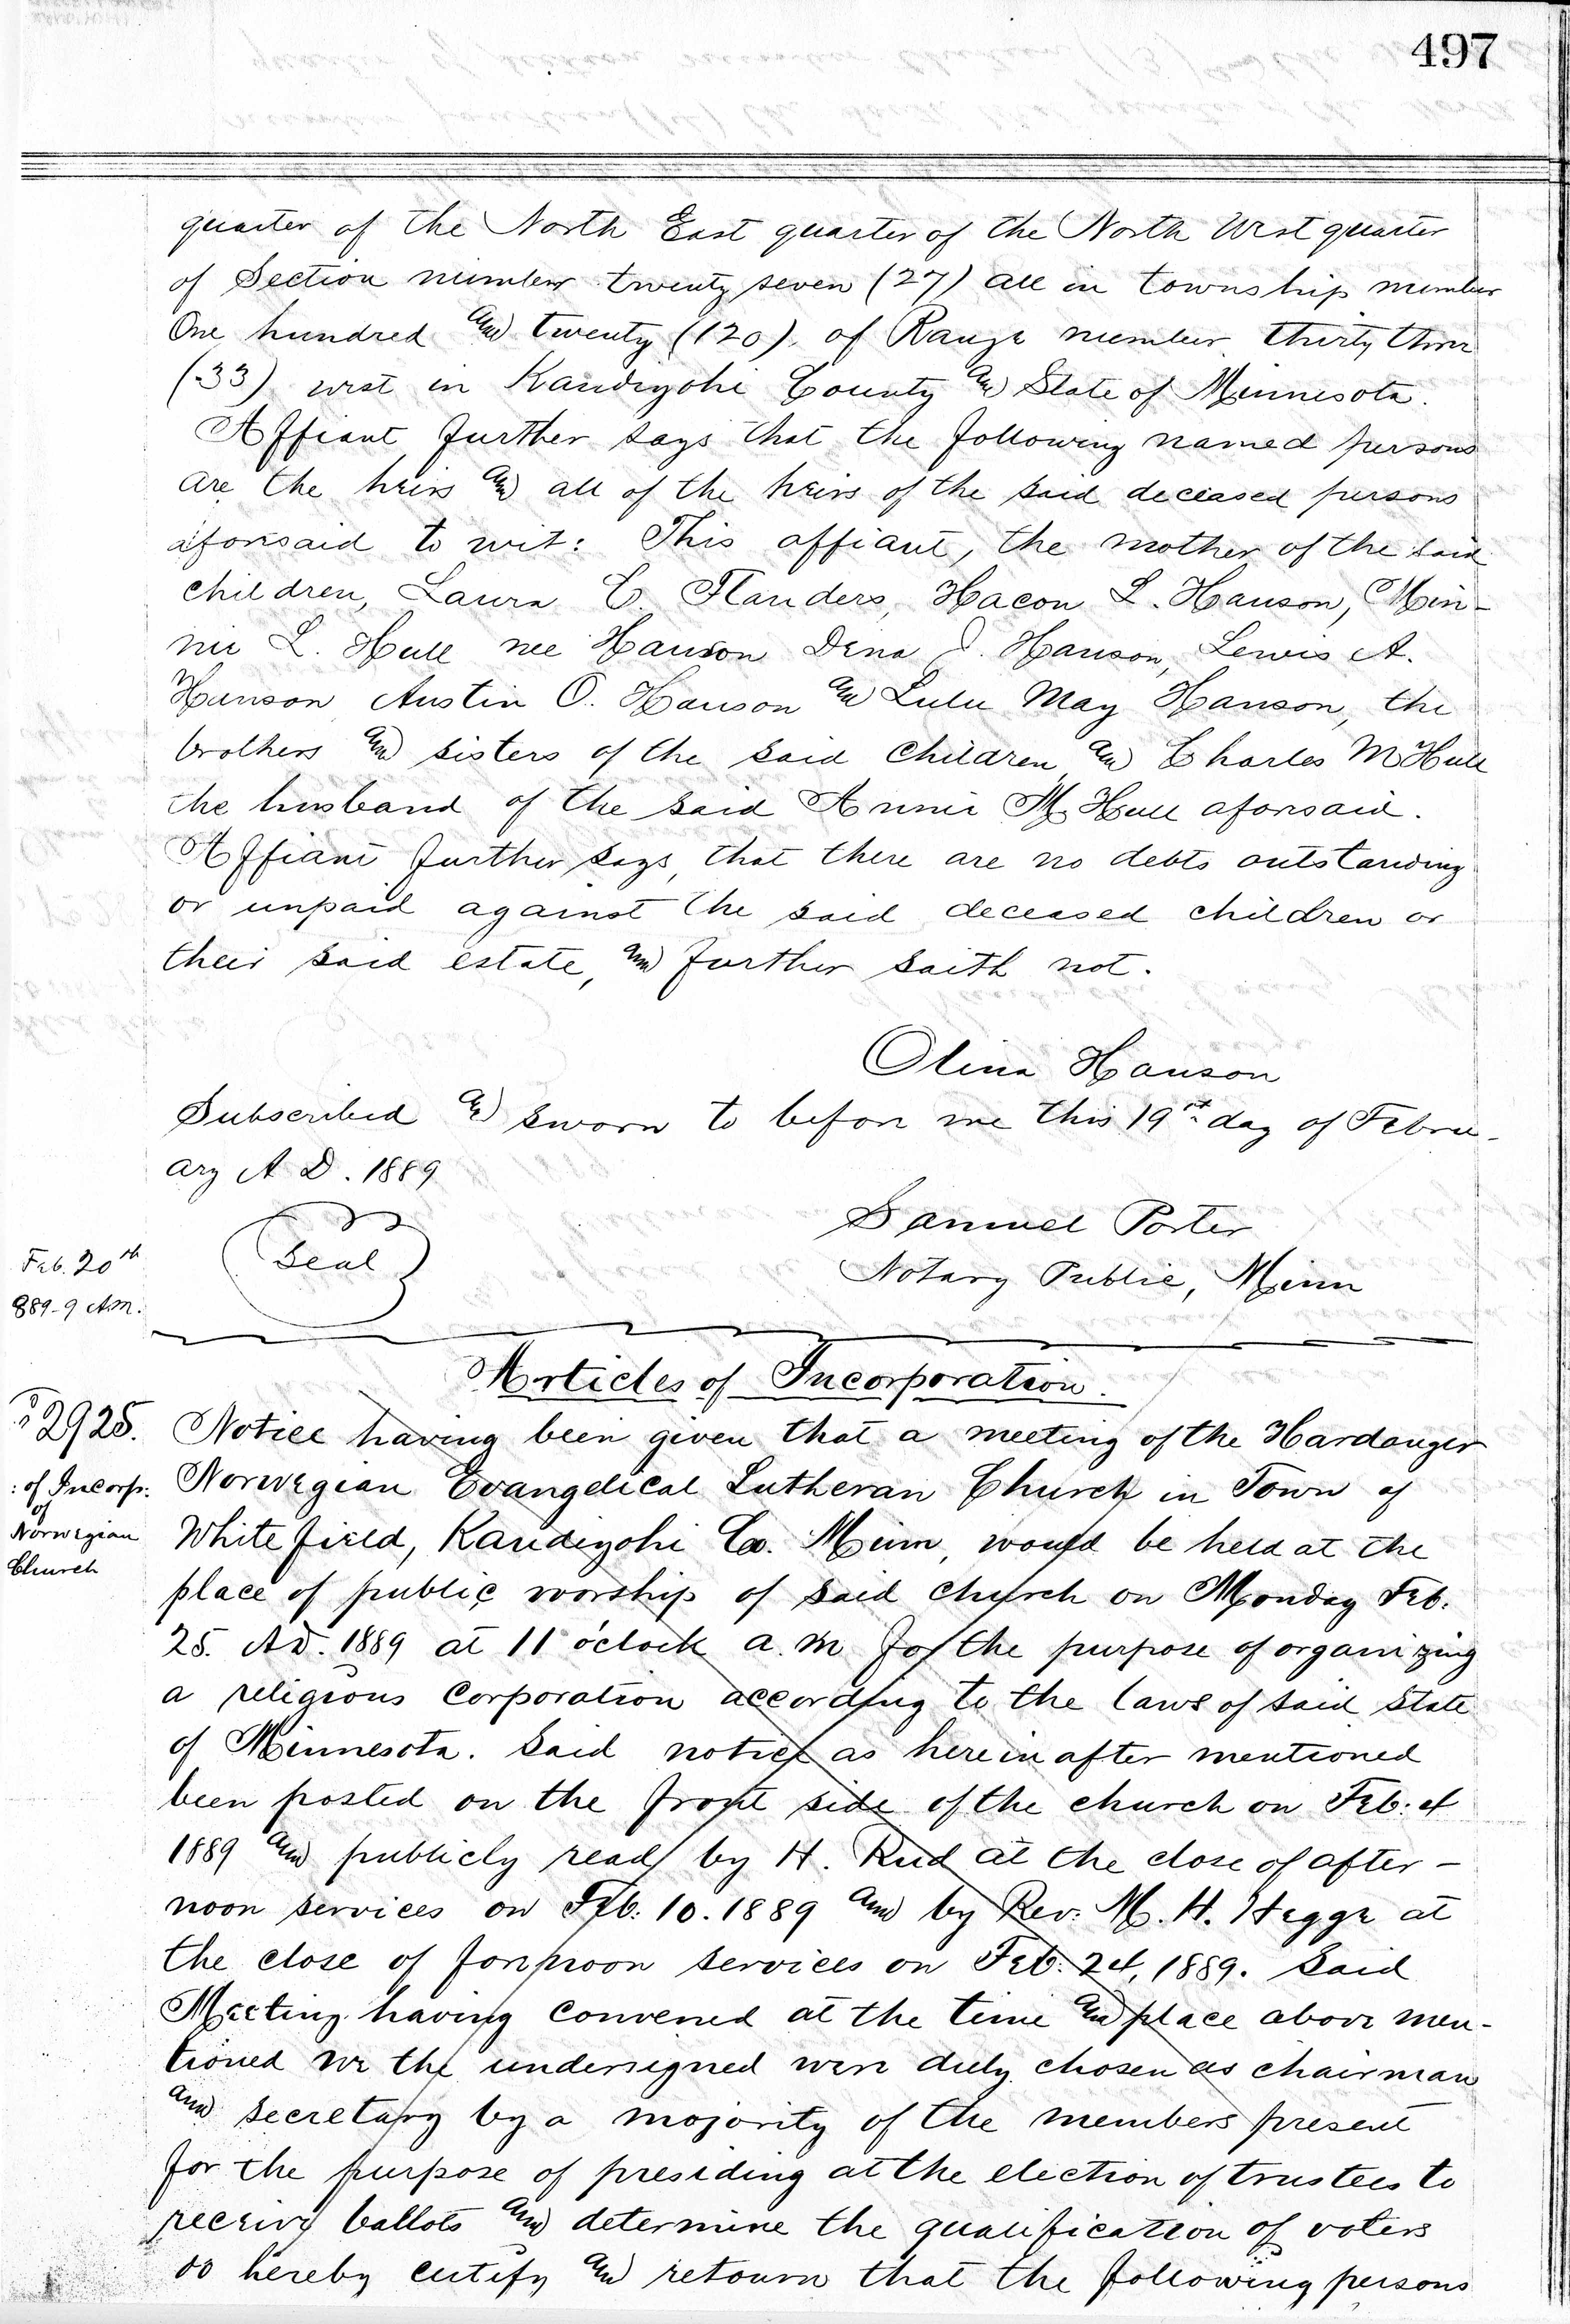 497
quarter of the North East quarter of the North West quarter
of Section number twenty seven (27) all in township number
One hundred and twenty (120), of Range number thirty three
(33) west in Kandiyohi County and State of Minnesota.
Affiant further says that the following named persons
are the heirs and all of the heirs of the said deceased persons
aforesaid to wit: This affiant, the mother of the said
children, Laura C. Flanders, Hacon L. Hanson, Min-
nie L. Hull nee Hanson Dena J. Hanson, Lewis A.
Hanson Austin O. Hanson and Lulu May Hanson, the
brothers and sisters of the said children and Charles M Hull
the husband of the said Annie M Hull aforesaid.
Affiant further says, that there are no debts outstanding
or unpaid against the said deceased children or
their said estate, and further saith not.
Olina Hanson
Subscribed and sworn to before me this 19th day of Febru-
ary A D. 1889
Samuel Porter
Seal
Notary Public, Minn
Feb. 20th
889-9 AM.
Articles of Incorporation.
2925.
: of Incorp:
of
Norwegian
Church
Notice having been given that a meeting of the Hardanger
Norwegian Evangelical Lutheran Church in Town of
Whitefield, Kandiyohi Co. Minn, would be held at the
place of public worship of said church on Monday Feb.
25. AD. 1889 at 11 o'clock a.m for the purpose of organizing
a religious corporation according to the laws of said State
of Minnesota. Said notice as herein after mentioned
been posted on the front side of the church on Feb: 4
1889 and publicly read by H. Rud at the close of after-
noon services on Feb: 10. 1889 and by Rev: M. H. Hegge at
the close of forenoon services on Feb: 24, 1889. Said
Meeting having convened at the time and place above men-
tioned we the undersigned were duly chosen as chairman
and secretary by a majority of the members present
for the purpose of presiding at the election of trustees to
receive ballots and determine the qualification of voters
do hereby certify and retourn that the following persons